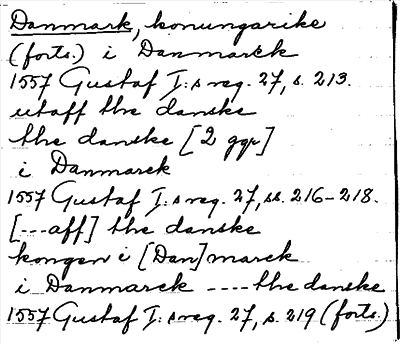 Danmark, konungarike
(forts.) i Danmarck
1557 Gustaf I:s reg. 27, s. 213.
utaff the danske
the danske [2 ggr]
i Danmarck
1557 Gustaf I:s reg. 27, ss. 216-218.
[---aff] the danske
kongen i [Dan]marck
i Danmarck ---- the danske
1557 Gustaf I:s reg. 27, s. 219 (forts.)